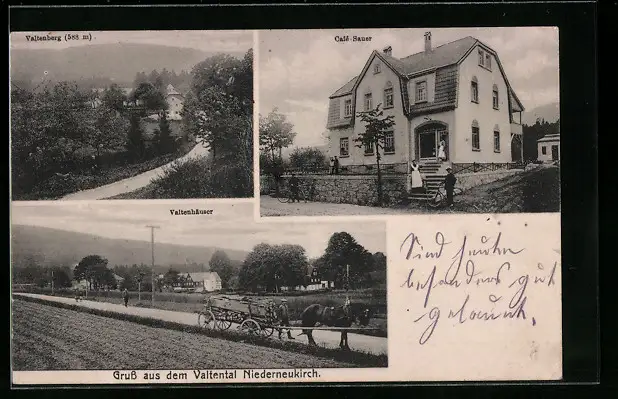 Valtenberg (588 m)
Café Sauer
Valtenhäuser
Sind heute
besonders gut
gelaunt.
Gruß aus dem Valtental Niederneukirch.